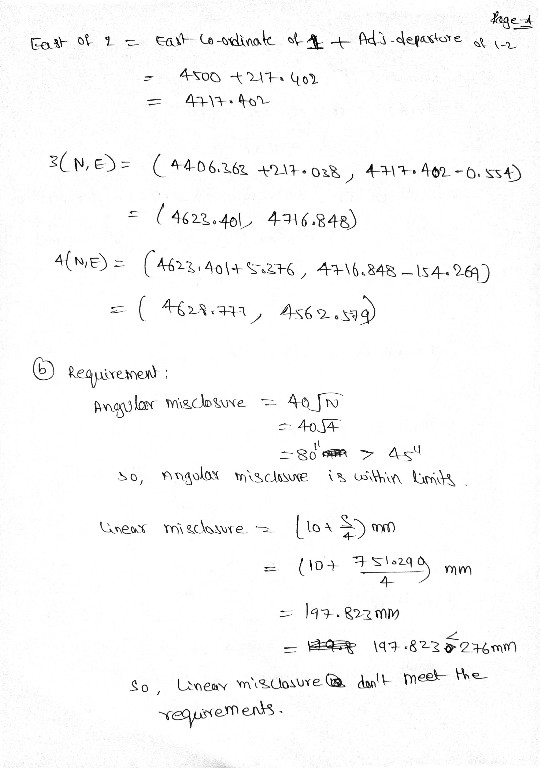 Page-4
East of 2 = East Co-ordinate of 1 + Adj-departure of 1-2
= 4500 + 217.402
= 4717.402
3(N, E) = (4406.363 + 217.038, 4717.402 - 0.554)
= (4623.401, 4716.848)
4(N,E) = (4623.401 + 5.376, 4716.848 - 154.269)
= (4628.777, 4562.579)
(b) Requirement:
Angular misclosure = 40√N
= 40√4
= 80" > 45"
so, Angular misclosure is within limits.
Linear misclosure = (10 + S/4) mm
= (10 + 751.290/4) mm
= 197.823 mm
= 197.823 < 276mm
So, Linear misclosure don't meet the
requirements.